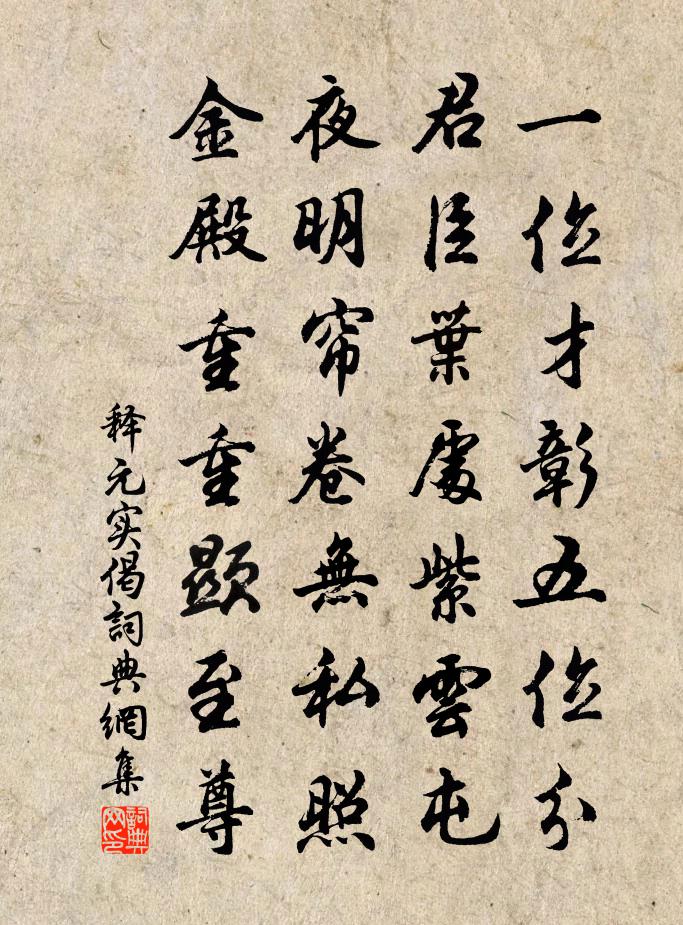 一位才彰五位分
君臣葉處紫雲屯
夜明帘卷無私照
金殿重重顯至尊
释元实偈詞典網集
詞典网印